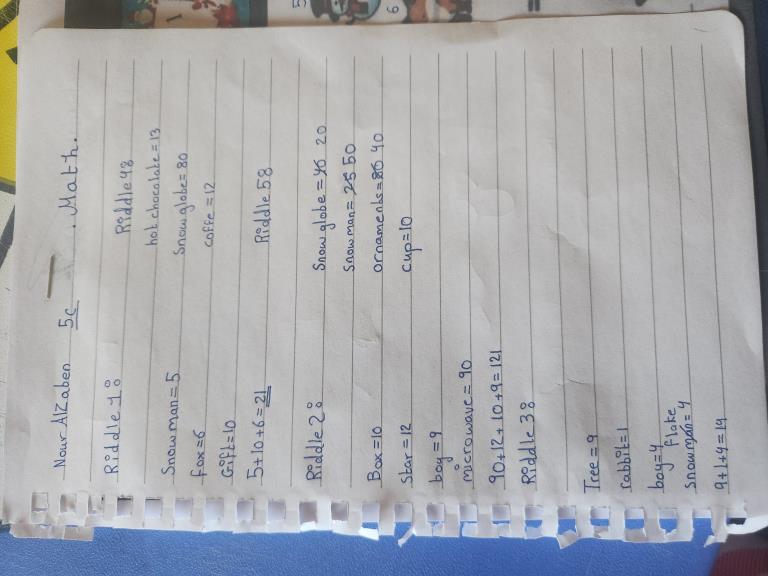 Nour AlZaben 5c . Math.
Riddle 1:
Snowman = 5
fox=6
Gift=10
5+10+6=21
Riddle 2:
Box=10
star=12
boy=9
microwave=90
90+12+10+9=121
Riddle 3:
Tree=9
rabbit=1
boy=4
flake
snowman=4
9+1+4=14
Riddle 4:
hot chocolate=13
Snow globe=80
coffe=12
Riddle 5:
Snow globe= 20
Snowman= 50
ornaments= 40
cup=10
1
5
6